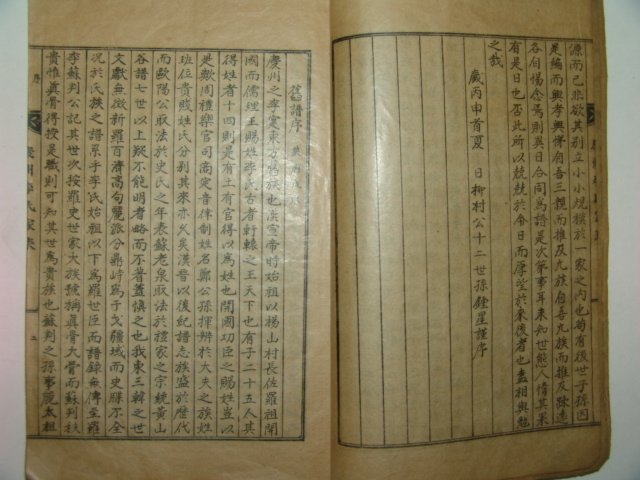 源而已非欲其別立小小規模於一家之內也苟有後世子孫因
是編而興孝興悌自吾三親而推及九族自吾九族而推及踈遠
各自惕念焉則與日合同爲譜是次第事耳未知世態人情其果
有是日也否此所以兢兢於今日而厚望於來後者也盍相與勉
之哉
歲丙申首夏 日柳村公十二世孫鍾星謹序
舊譜序
慶州之李寔東方鴻族也漢宣帝時始祖以楊山村長佐羅祖開
國而儒理王賜姓李氏古者軒轅之王天下也有子二十五人其
得姓者十四則是有土有官得以爲姓也開國功臣之賜姓豈以
是歟周禮樂官司商定音律制姓名鄭公孫揮辨於大夫之族姓
班位貴賤姓氏分別其來亦久矣漢晉以後紀譜志族盛於歷代
而歐陽公取法於史氏之年表蘇老泉取法於禮家之宗統黃山
谷譜七世以上疑不能明者略而不著蓋愼之也我東三韓之世
文獻無徵新羅百濟高句麗派分鼎峙爲干戈疆域而史牒不全
況於氏族之譜系乎李氏始祖以下爲羅世臣而譜錄無傳至羅
李蘇判公記其世次按羅史世家大族號稱眞骨大骨而蘇判扶
貴惟眞骨得授是職則可知其世爲貴族也蘇判之孫事麗太祖
序
慶州李氏家乘
二